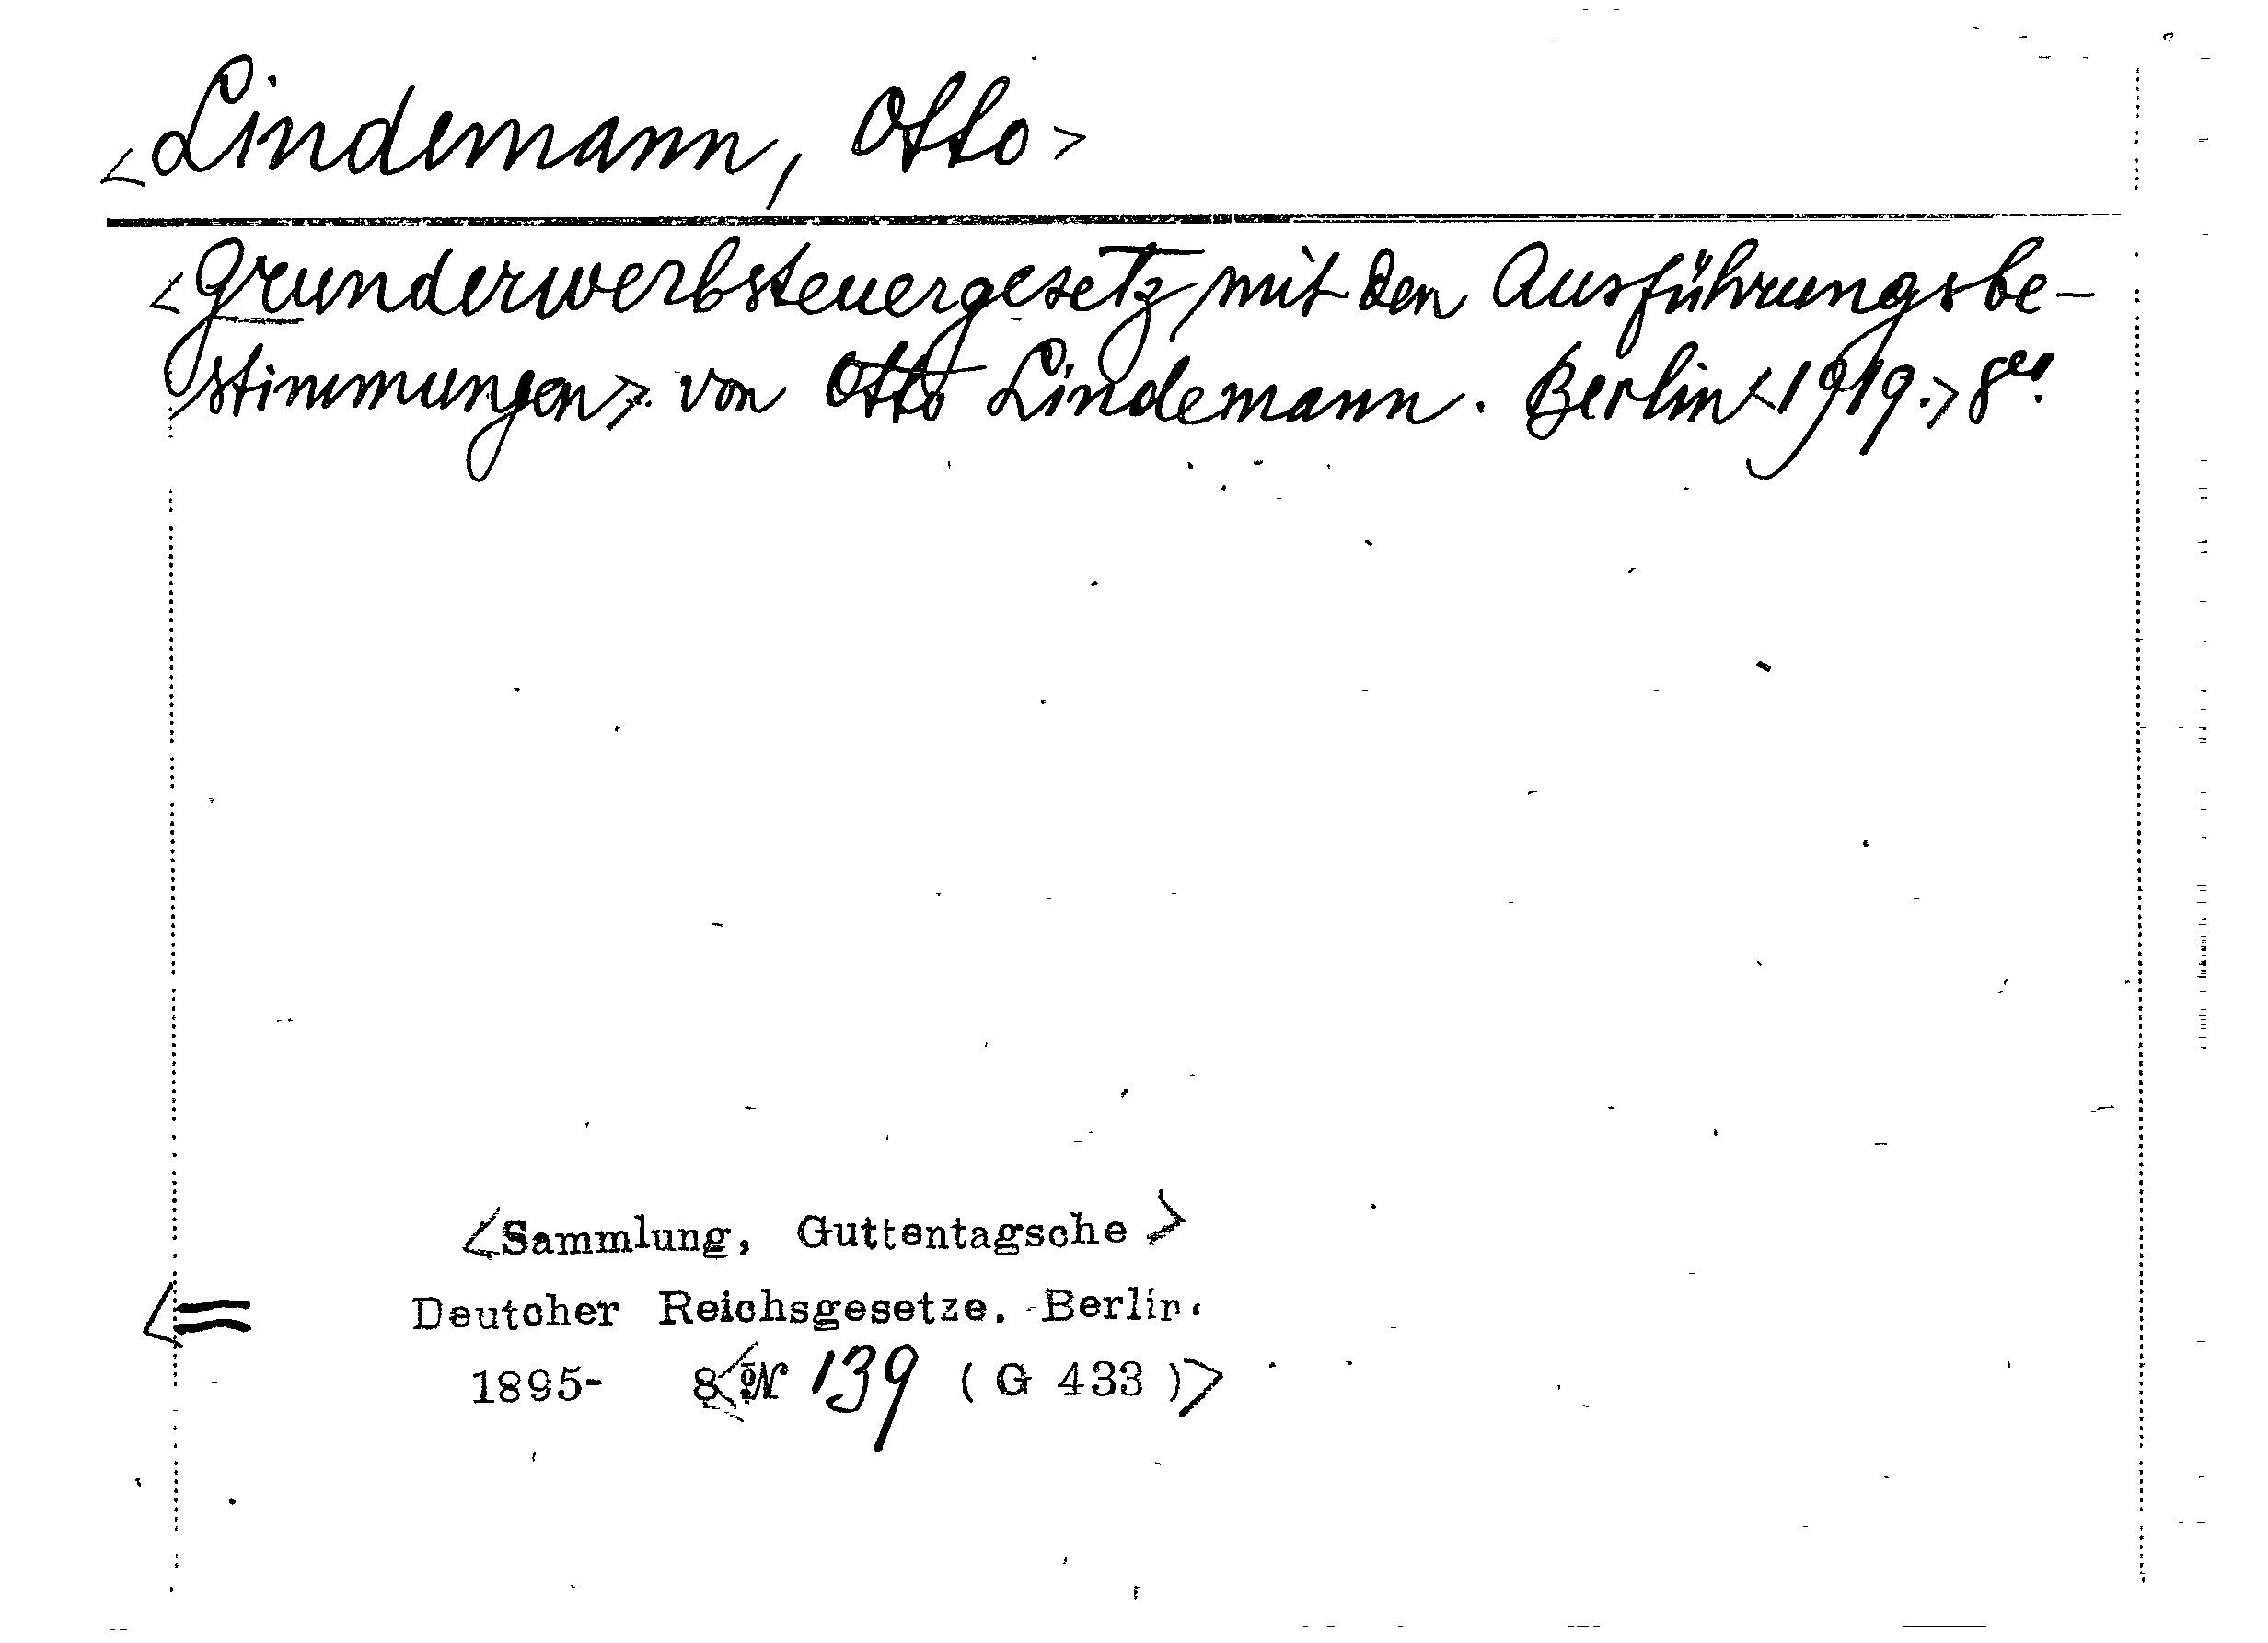 <Lindemann, Otto>
<Grunderwerbsteuergesetz mit den Ausführungsbe-
stimmungen>. von Otto Lindemann. Berlin <1919.> 8º.
<Sammlung, Guttentagsche>
<= Deutcher Reichsgesetze. -Berlin.
1895- 8º <N 139 (G 433)>